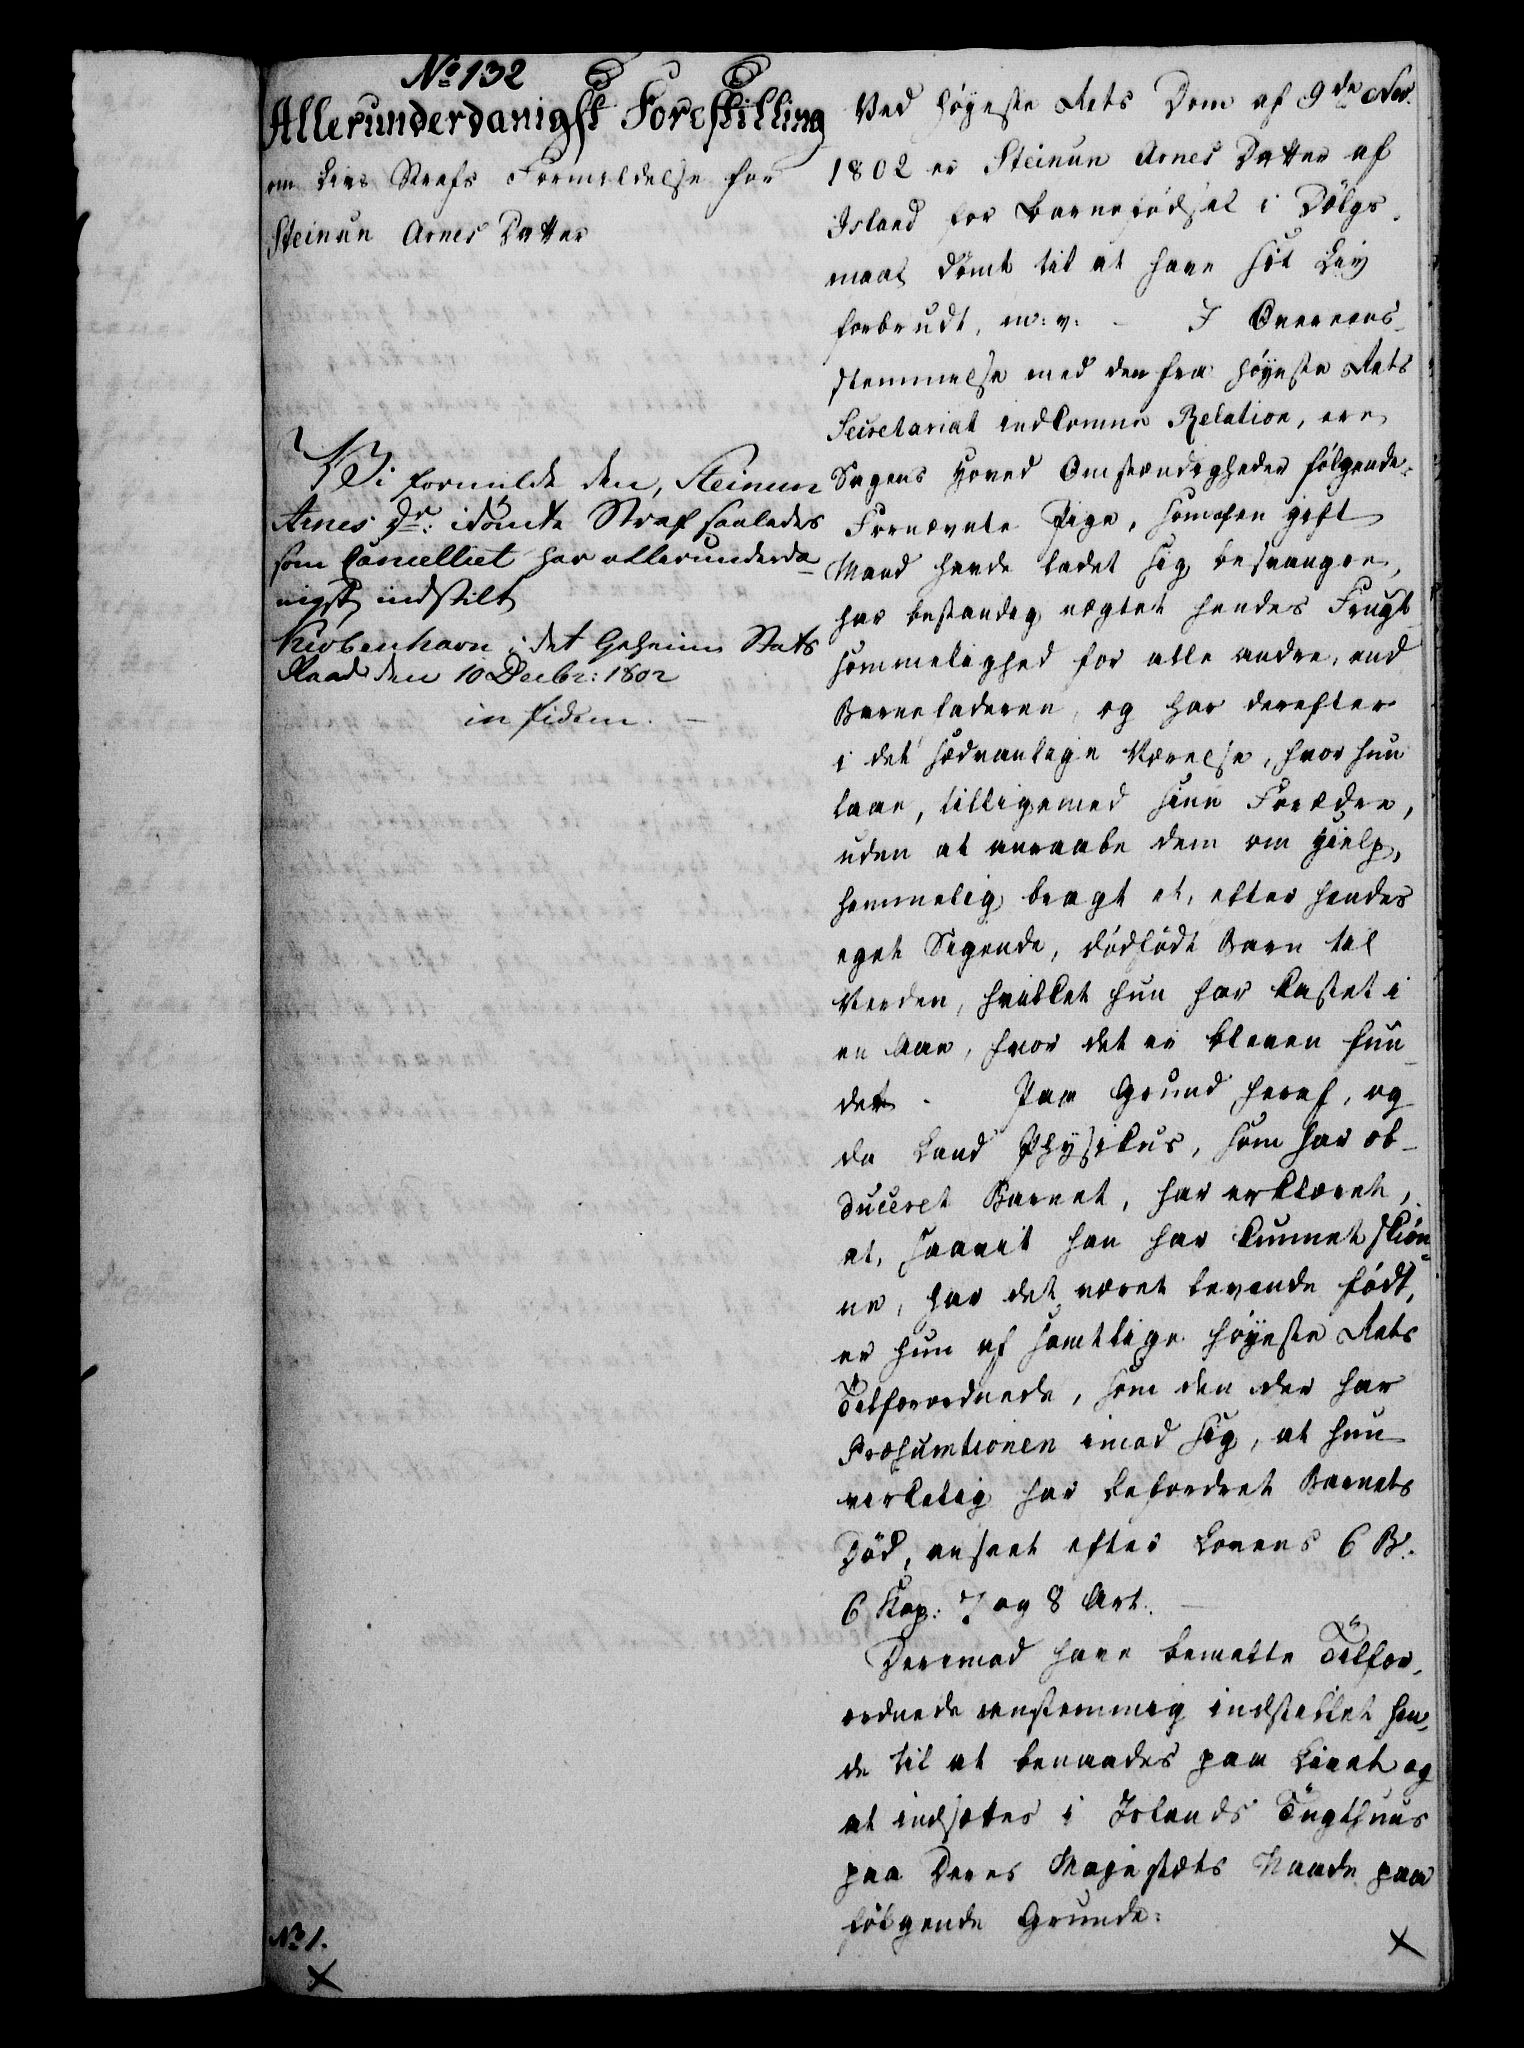 No 132
Allerunderdanigst Forestilling
om Livs Strafs Formildelse for
Steinun Arnes Datter
Vi formilde den, Steinun
Arnes Dr: idömte Straf saaledes
som Cancelliet har allerunderda-
nigst indstilt
Kiöbenhavn i det Geheime Stats
Raad den 10 Decbr: 1802
in fidem. -
No 1.
Ved Høyeste Rets Dom af 9de Nov.
1802 er Steinun Arnes Datter af
Island for Barnefødsel i Dølgs-
maal dømt til at have sit Liv
forbrudt, m: v: - I Overeens-
stemmelse med den fra Høyeste Rets
Secretariat indkomne Relation, ere
Sagens Hoved Omstændigheder følgende:
Fornævnte Pige, som af en gift
Mand havde ladet sig besvangre,
har bestandig nægtet hendes Frugt-
sommelighed for alle andre, end
Barnefaderen, og har derefter
i det sædvanlige Værelse, hvor hun
laae, tilligemed sine Forældre,
uden at anraabe dem om Hielp,
hemmelig bragt et, efter hendes
eget Sigende, dødfødt Barn til
Verden, hvilket hun har kastet i
en Aae, hvor det er bleven fun-
det. Paa Grund heraf, og
da Land Physikus, som har ob-
duceret Barnet, har erklæret,
at, saavit han har kunnet skiøn-
ne, har det været levende født,
er hun af samtlige Høyeste Rets
Tilforordnede, som den der har
Præsumtionen imod sig, at hun
virkelig har befordret Barnets
Død, anseet efter Lovens 6 B:
6 Kap: 7 og 8 Art. -
Derimod have bemelte Tilfor-
ordnede eenstemmig indstillet hen-
de til at benaades paa Livet og
at indsættes i Islands Tugthuus
paa Deres Majestæts Naade paa
følgende Grunde: